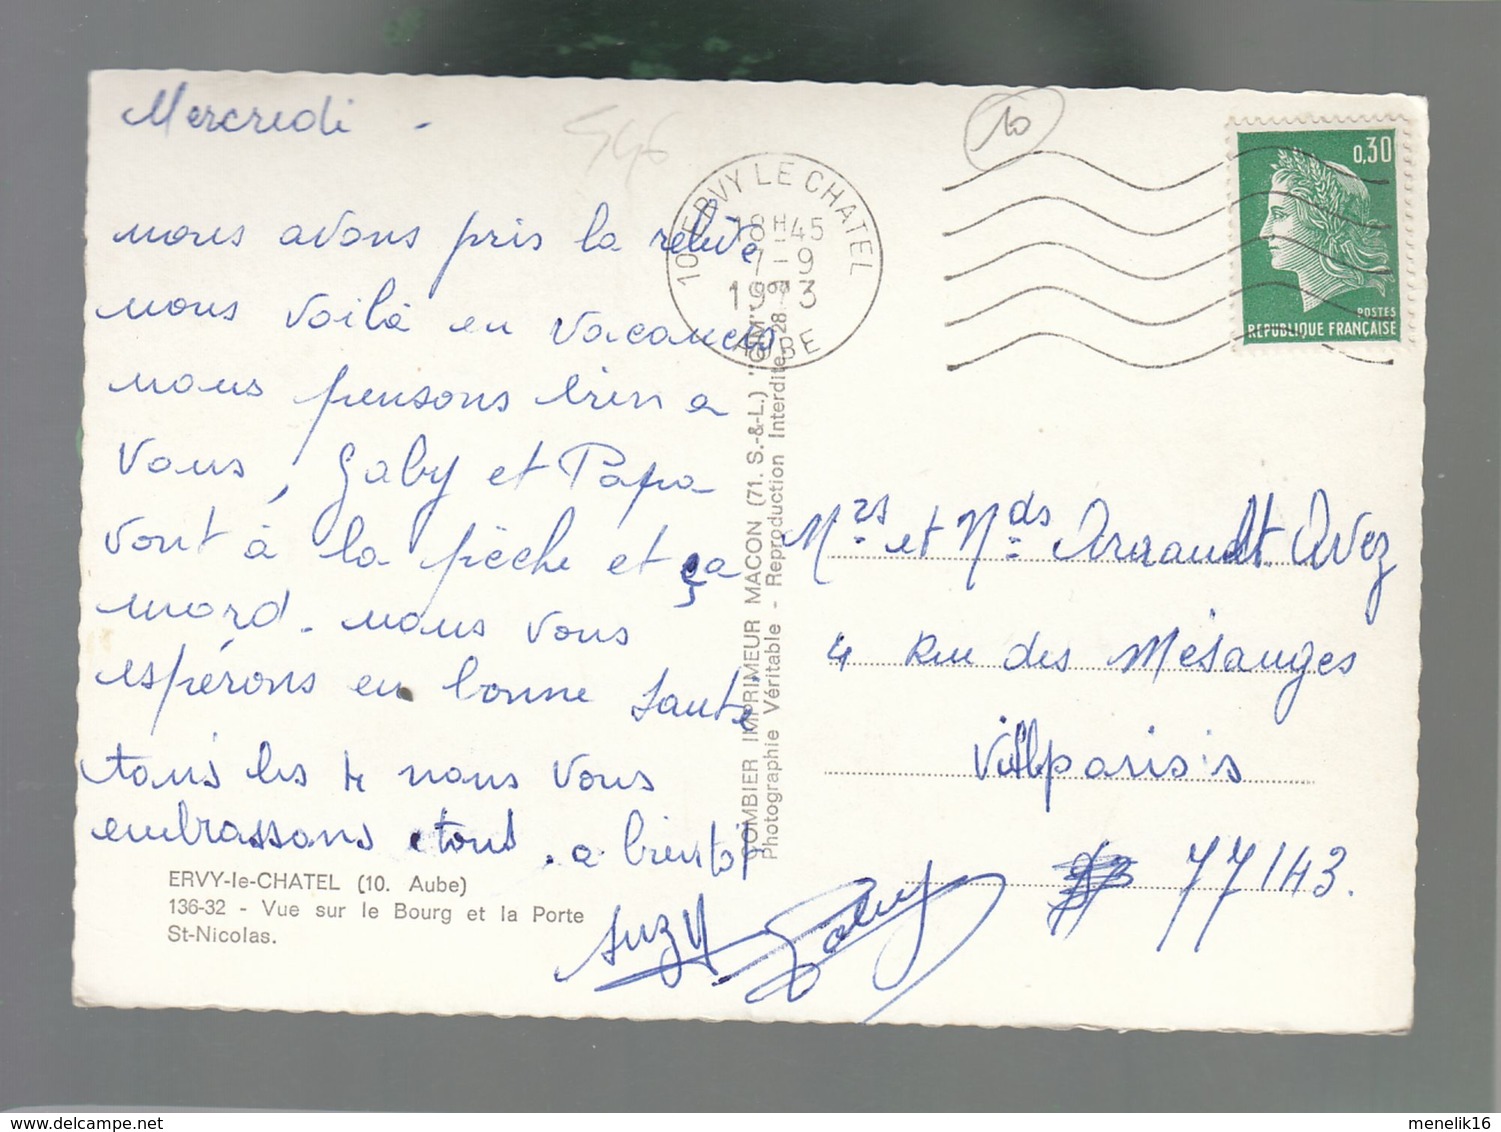 Mercredi -
546
10
nous avons pris la relève
nous voilà en vacances
nous pensons bien a
vous, Gaby et Papa
vont à la pêche et ça
mord. nous vous
espérons en bonne santé
tous les 4 nous vous
embrassons tous . a bientôt
suzy Gaby
ERVY-le-CHATEL (10. Aube)
136-32 - Vue sur le Bourg et la Porte
St-Nicolas.
10 ERVY LE CHATEL
18H45
7-9
1973
AUBE
COMBIER IMPRIMEUR MACON (71. S.-&-L.) "CIM"
Photographie Véritable - Reproduction Interdite
0,30
POSTES
REPUBLIQUE FRANÇAISE
Mrs et Mds Arnault Avez
4 Rue des Mésanges
Villparisis
77143.
delcampe.net
menelik16